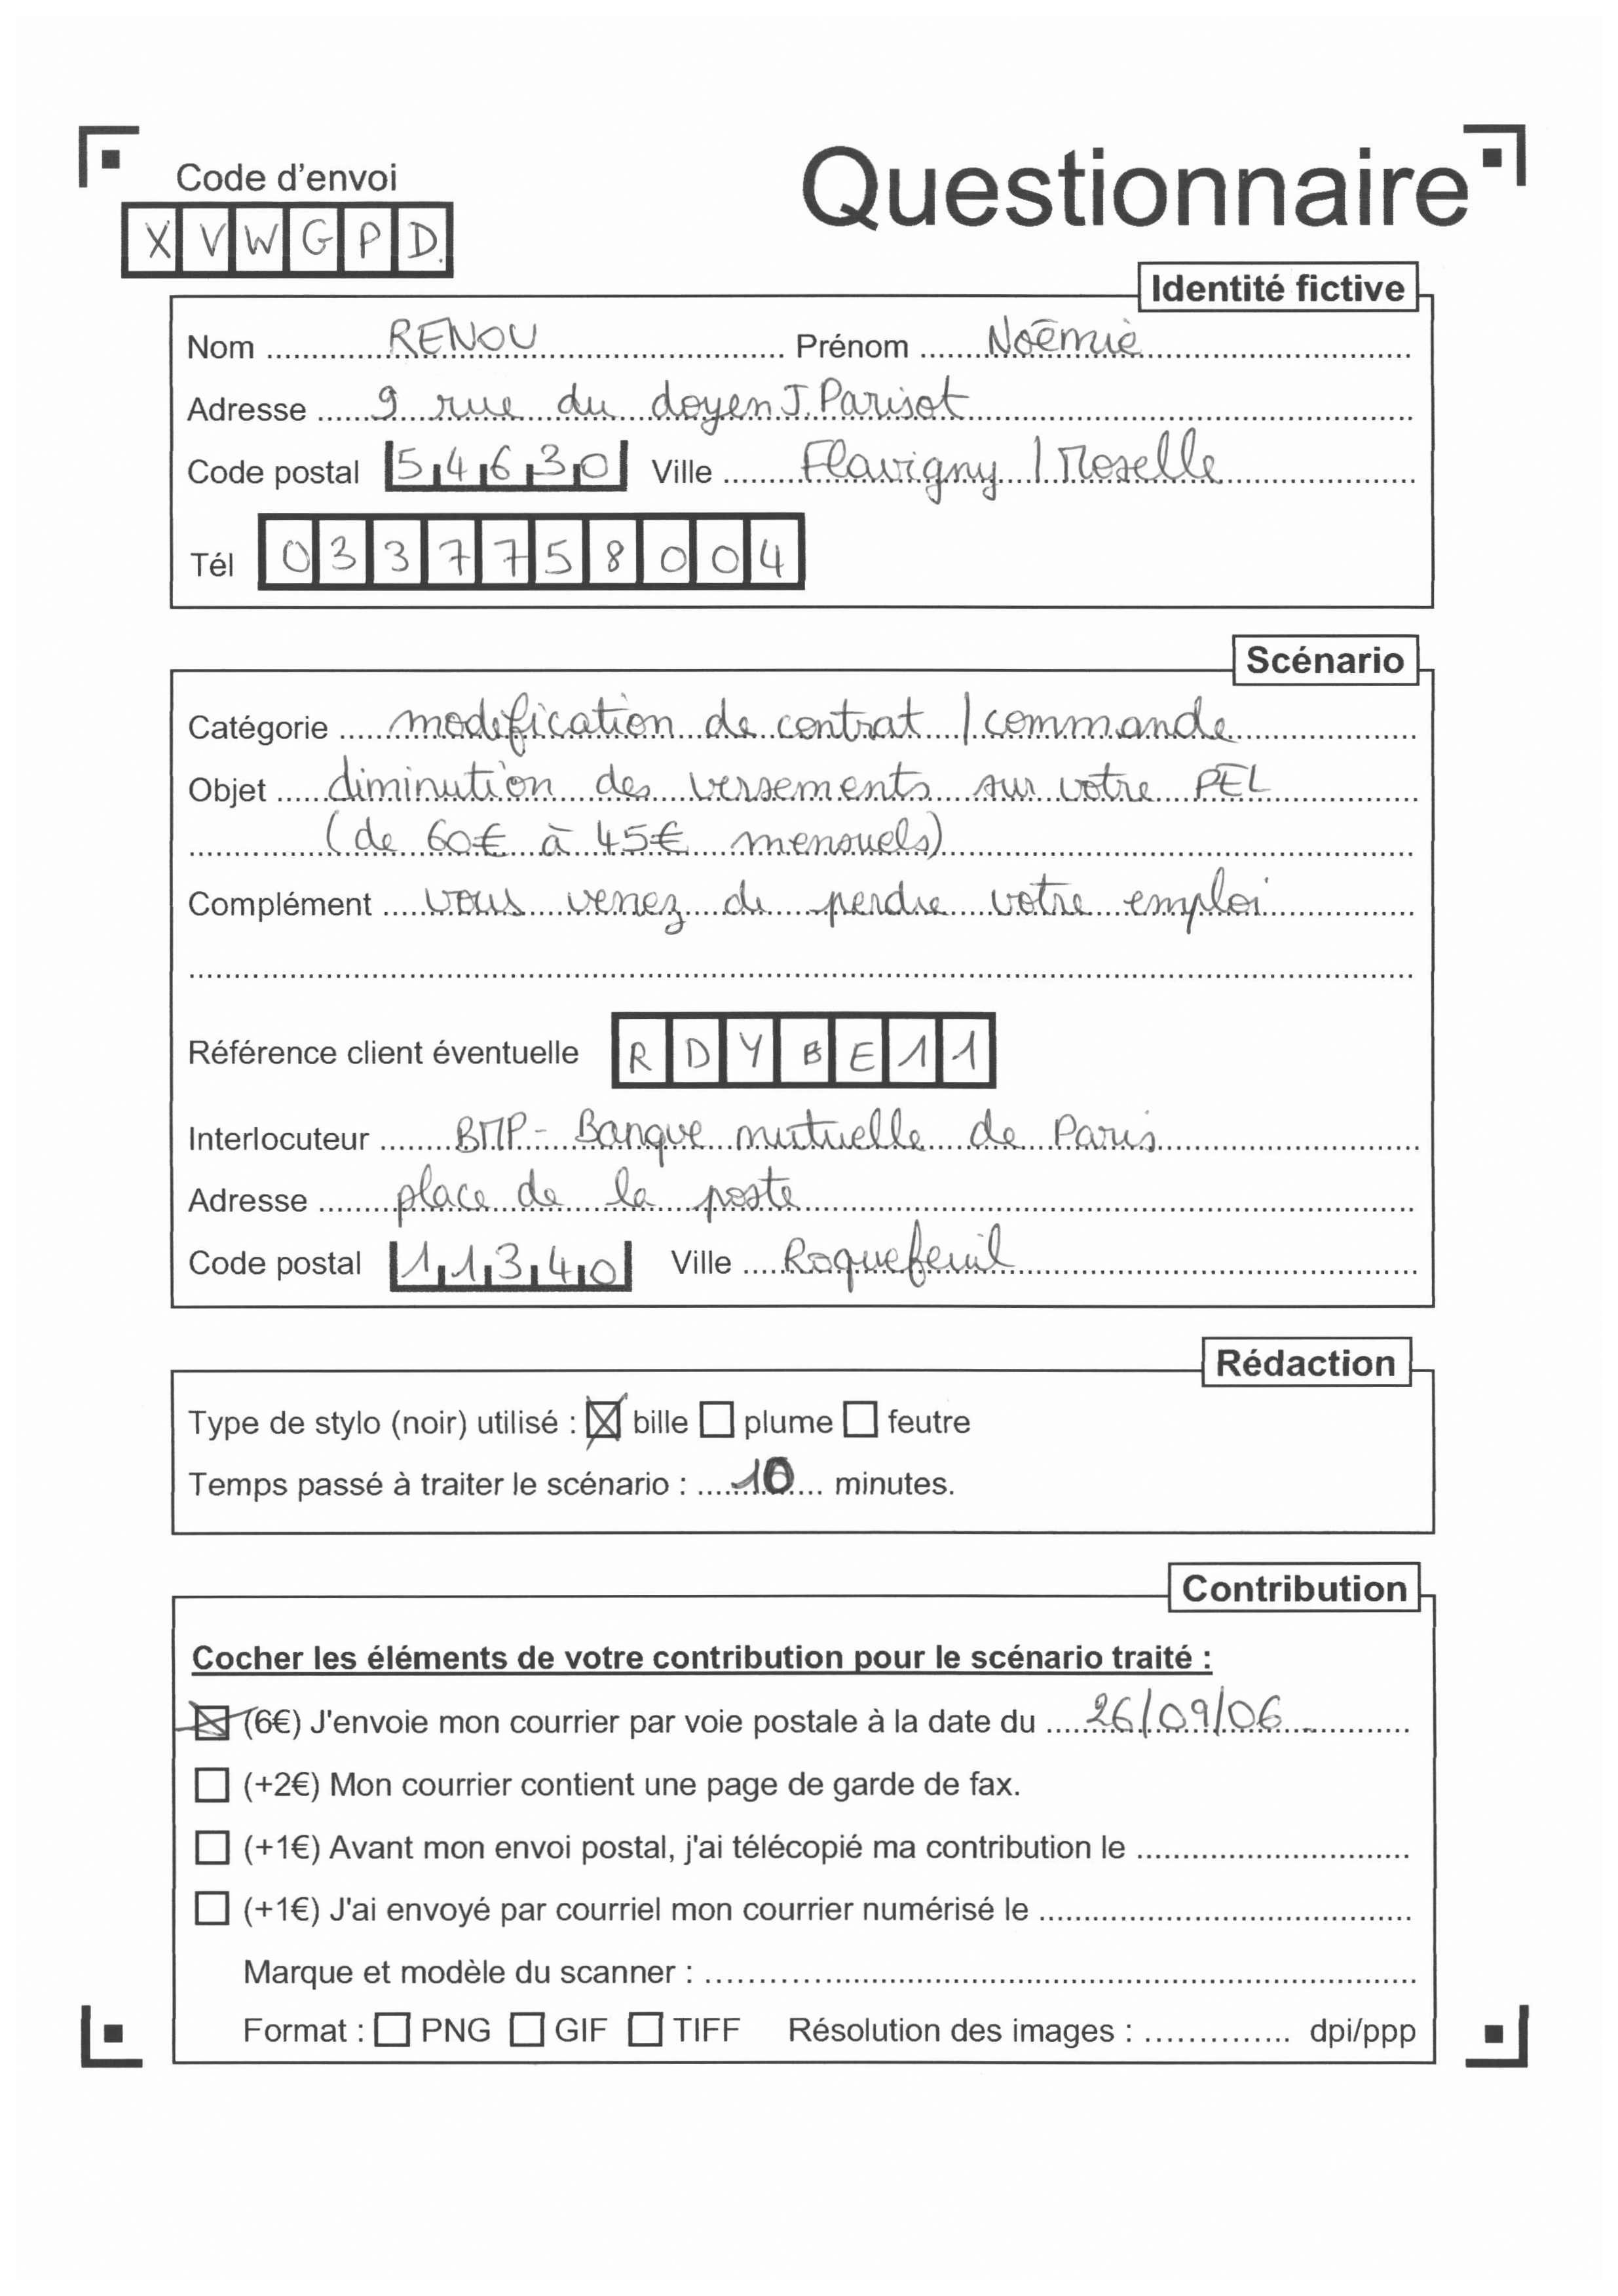 Code d'envoi
Questionnaire
X V W G P D
Identité fictive
Nom RENOU Prénom Noēmie
Adresse 9 rue du doyen J. Parisot
Code postal 54630 Ville Flavigny / Moselle
Tél 0337758004
Scénario
Catégorie modification de contrat / commande
Objet diminution des versements sur votre PEL
(de 60€ à 45€ mensuels)
Complément vous venez de perdre votre emploi
Référence client éventuelle R D Y B E 1 1
Interlocuteur BMP - Banque mutuelle de Paris
Adresse place de la poste
Code postal 11340 Ville Roquefeuil
Rédaction
Type de stylo (noir) utilisé : bille plume feutre
Temps passé à traiter le scénario : 10 minutes.
Contribution
Cocher les éléments de votre contribution pour le scénario traité :
(6€) J'envoie mon courrier par voie postale à la date du 26/09/06
(+2€) Mon courrier contient une page de garde de fax.
(+1€) Avant mon envoi postal, j'ai télécopié ma contribution le
(+1€) J'ai envoyé par courriel mon courrier numérisé le
Marque et modèle du scanner :
Format : PNG GIF TIFF Résolution des images : dpi/ppp